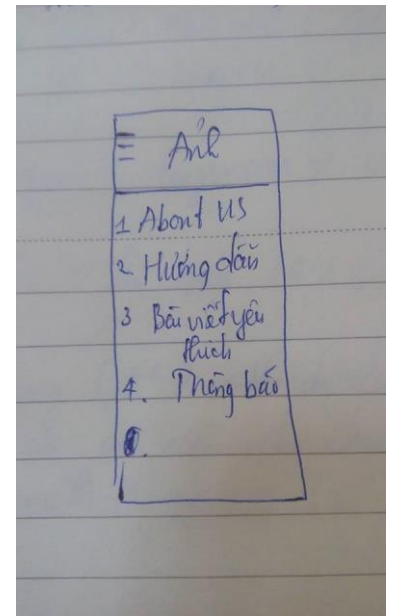 Ảnh
1 About US
2 Hướng dẫn
3 Bài viết yêu
thích
4. Thông báo